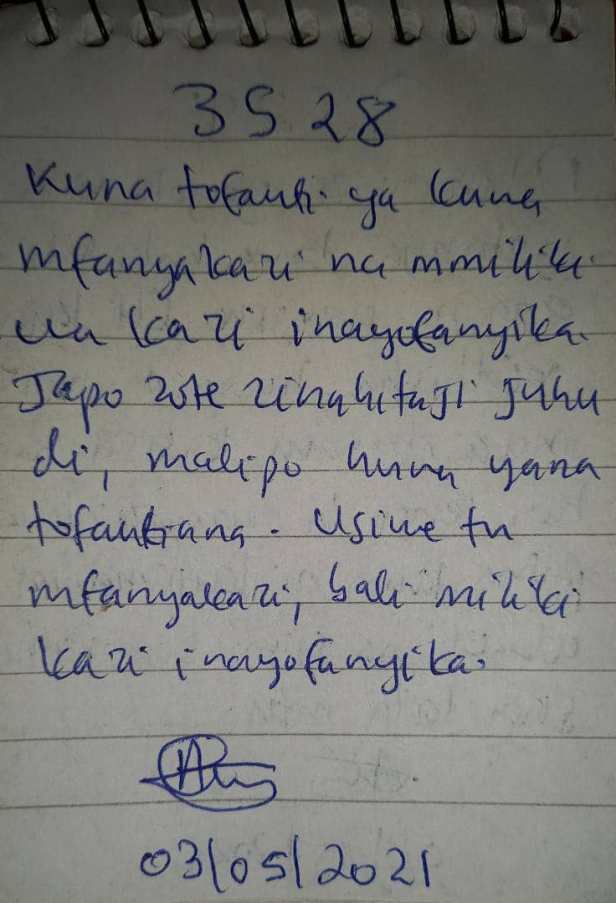 3528
Kuna tofauti ya kuwa
mfanyakazi na mmiliki
wa kazi inayofanyika.
Japo zote zinahitaji juhu
di, malipo huwa yana
tofautiana. Usiwe tu
mfanyakazi, bali miliki
kazi inayofanyika.
03/05/2021